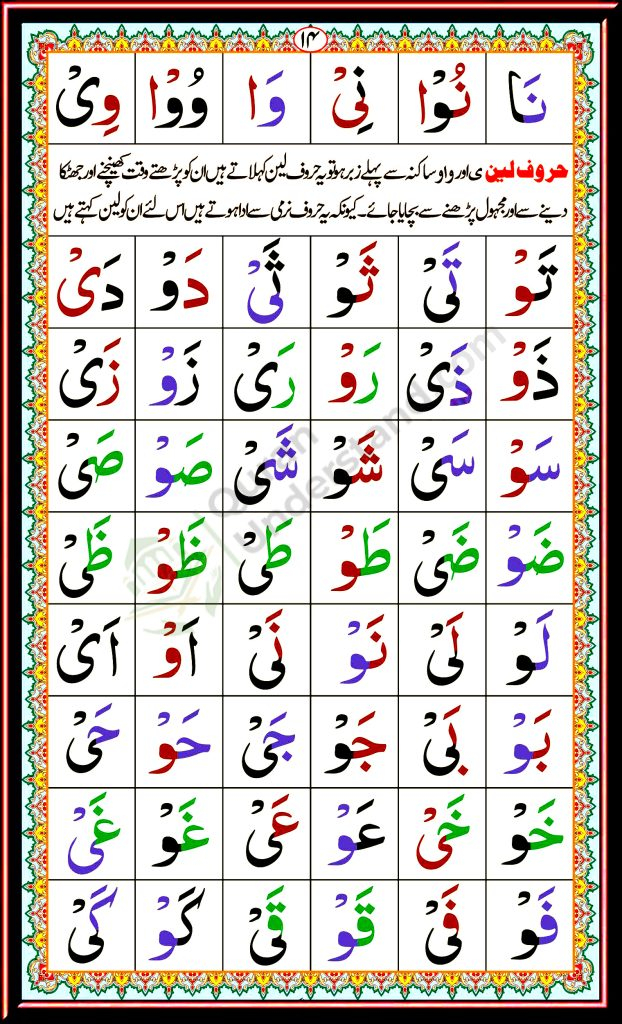 ۱۴
نَا نُوْا نِیْ وَا وُوْا وِیْ
حروف لین ی اور واو ساکنہ سے پہلے زبر ہو تو یہ حروف لین کہلاتے ہیں ان کو پڑھتے وقت کھینچنے اور جھٹکا
دینے سے اور مجہول پڑھنے سے بچایا جائے۔ کیونکہ یہ حروف نرمی سے ادا ہوتے ہیں اس لئے ان کو لین کہتے ہیں
تَوْ تَیْ ثَوْ ثَیْ دَوْ دَیْ
ذَوْ ذَیْ رَوْ رَیْ زَوْ زَیْ
سَوْ سَیْ شَوْ شَیْ صَوْ صَیْ
ضَوْ ضَیْ طَوْ طَیْ ظَوْ ظَیْ
لَوْ لَیْ نَوْ نَیْ اَوْ اَیْ
بَوْ بَیْ جَوْ جَیْ حَوْ حَیْ
خَوْ خَیْ عَوْ عَیْ غَوْ غَیْ
فَوْ فَیْ قَوْ قَیْ كَوْ كَیْ
Quran
Understand.com